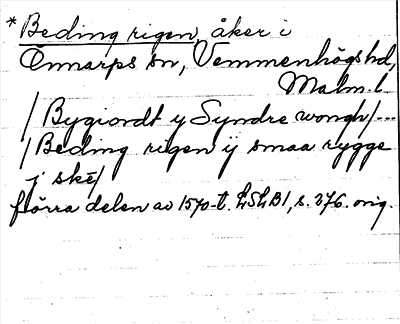 *Beding rigen, åker i
Önnarps sn, Vemmenhögs hd,
Malm. l.
/Bygiordt y Syndre wongh/---
/Beding rigen ij smaa rygge
j skē/
förra delen av 1570-t. LSLB1, s. 376. orig.